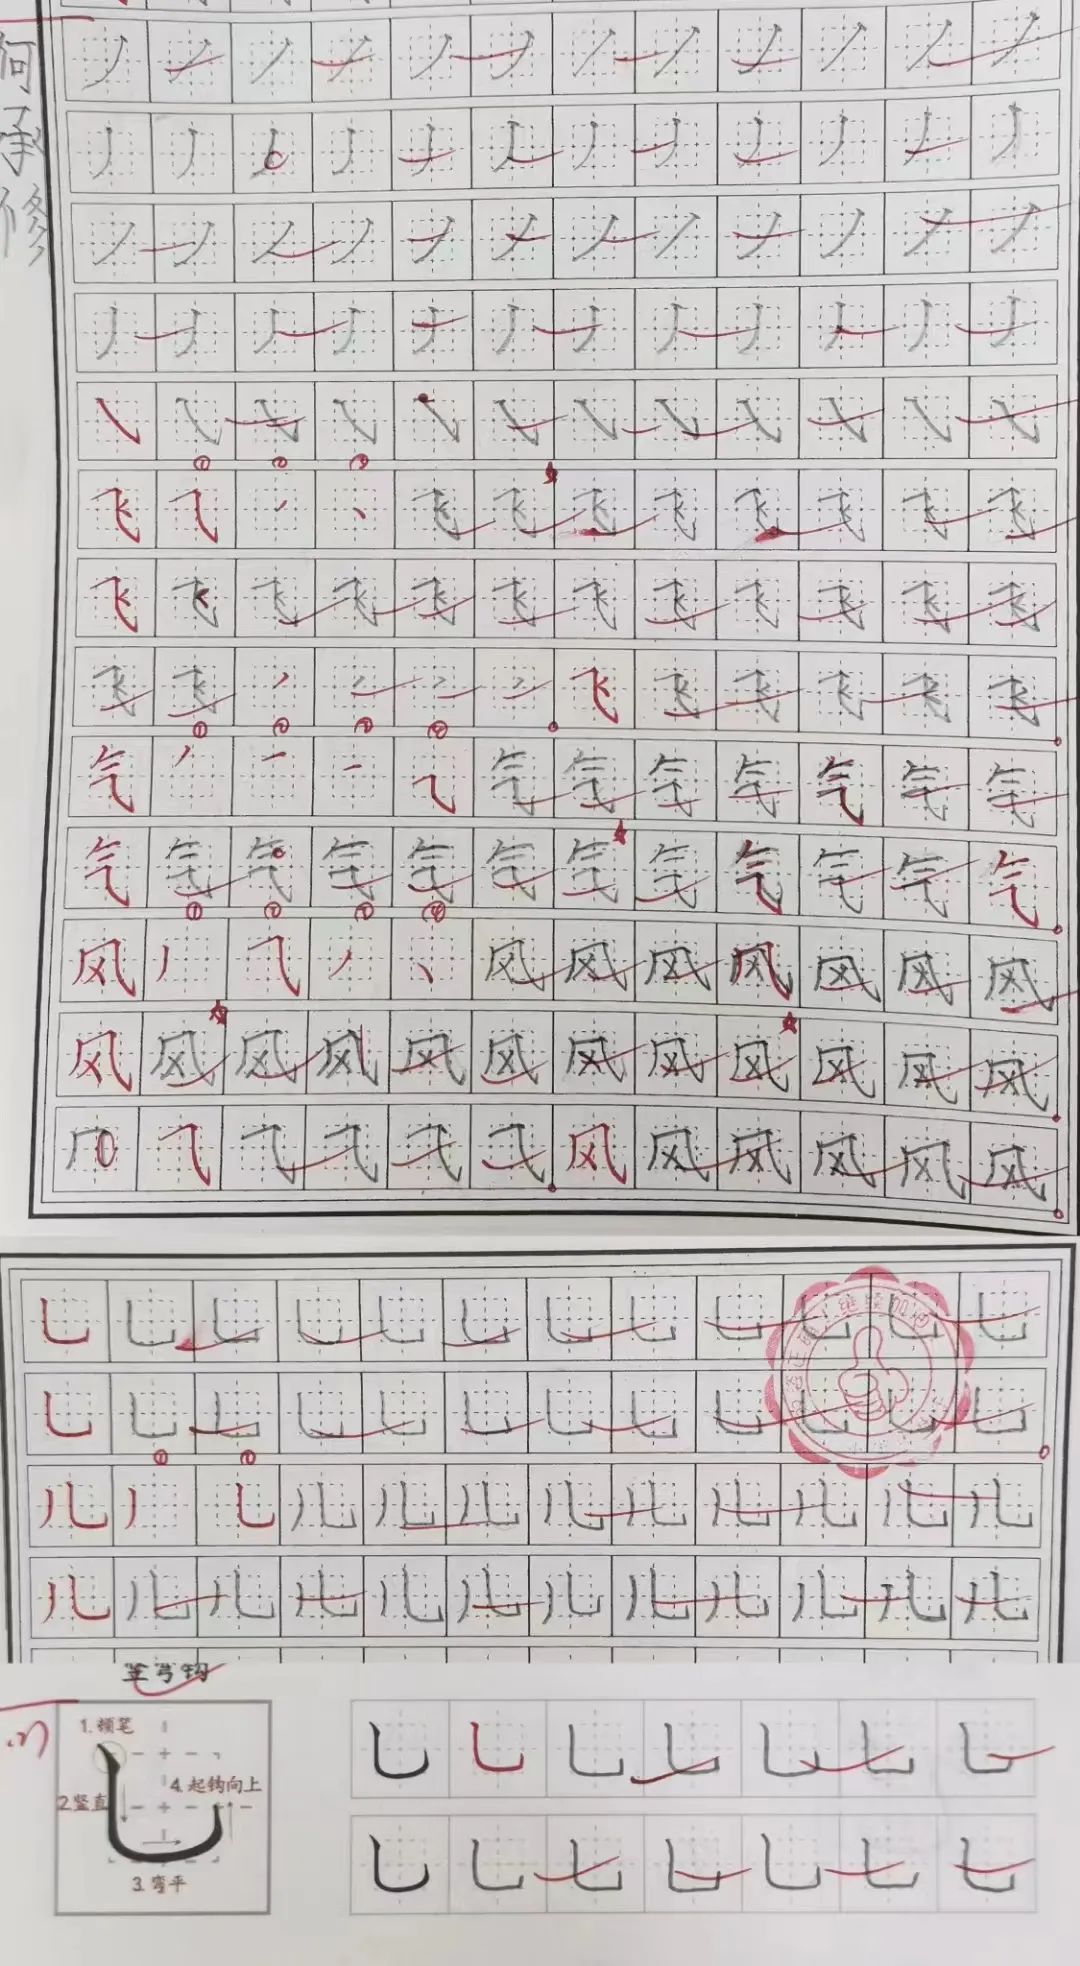 何承修
丿 丿 丿 丿 丿 丿 丿 丿 丿 丿 丿 丿
丿 丿 丿 丿 丿 丿 丿 丿 丿 丿 丿 丿
丿 丿 丿 丿 丿 丿 丿 丿 丿 丿 丿 丿
丿 丿 丿 丿 丿 丿 丿 丿 丿 丿 丿 丿
㇂ ㇂ ㇂ ㇂ ㇂ ㇂ ㇂ ㇂ ㇂ ㇂ ㇂ ㇂
① ② ③
飞 ⺄ 丿 丶 飞 飞 飞 飞 飞 飞 飞 飞
飞 飞 飞 飞 飞 飞 飞 飞 飞 飞 飞 飞
飞 飞 丿 飞 飞 飞 飞 飞 飞
① ② ③ ④
气 丿 一 一 ⺄ 气 气 气 气 气 气 气
气 气 气 气 气 气 气 气 气 气 气 气
① ② ③ ④
风 丿 ⺄ 丿 丶 风 风 风 风 风 风 风
风 风 风 风 风 风 风 风 风 风 风 风
⺄ ⺄ ⺄ ⺄ ⺄ 风 风 风 风 风 风
乚 乚 乚 乚 乚 乚 乚 乚 乚 乚 乚 乚
乚 乚 乚 乚 乚 乚 乚 乚 乚 乚 乚 乚
① ②
儿 丿 乚 儿 儿 儿 儿 儿 儿 儿 儿 儿
儿 儿 儿 儿 儿 儿 儿 儿 儿 儿 儿 儿
竖弯钩
1.顿笔
2.竖直
4.起钩向上
3.弯平
乚 乚 乚 乚 乚 乚 乚
乚 乚 乚 乚 乚 乚 乚